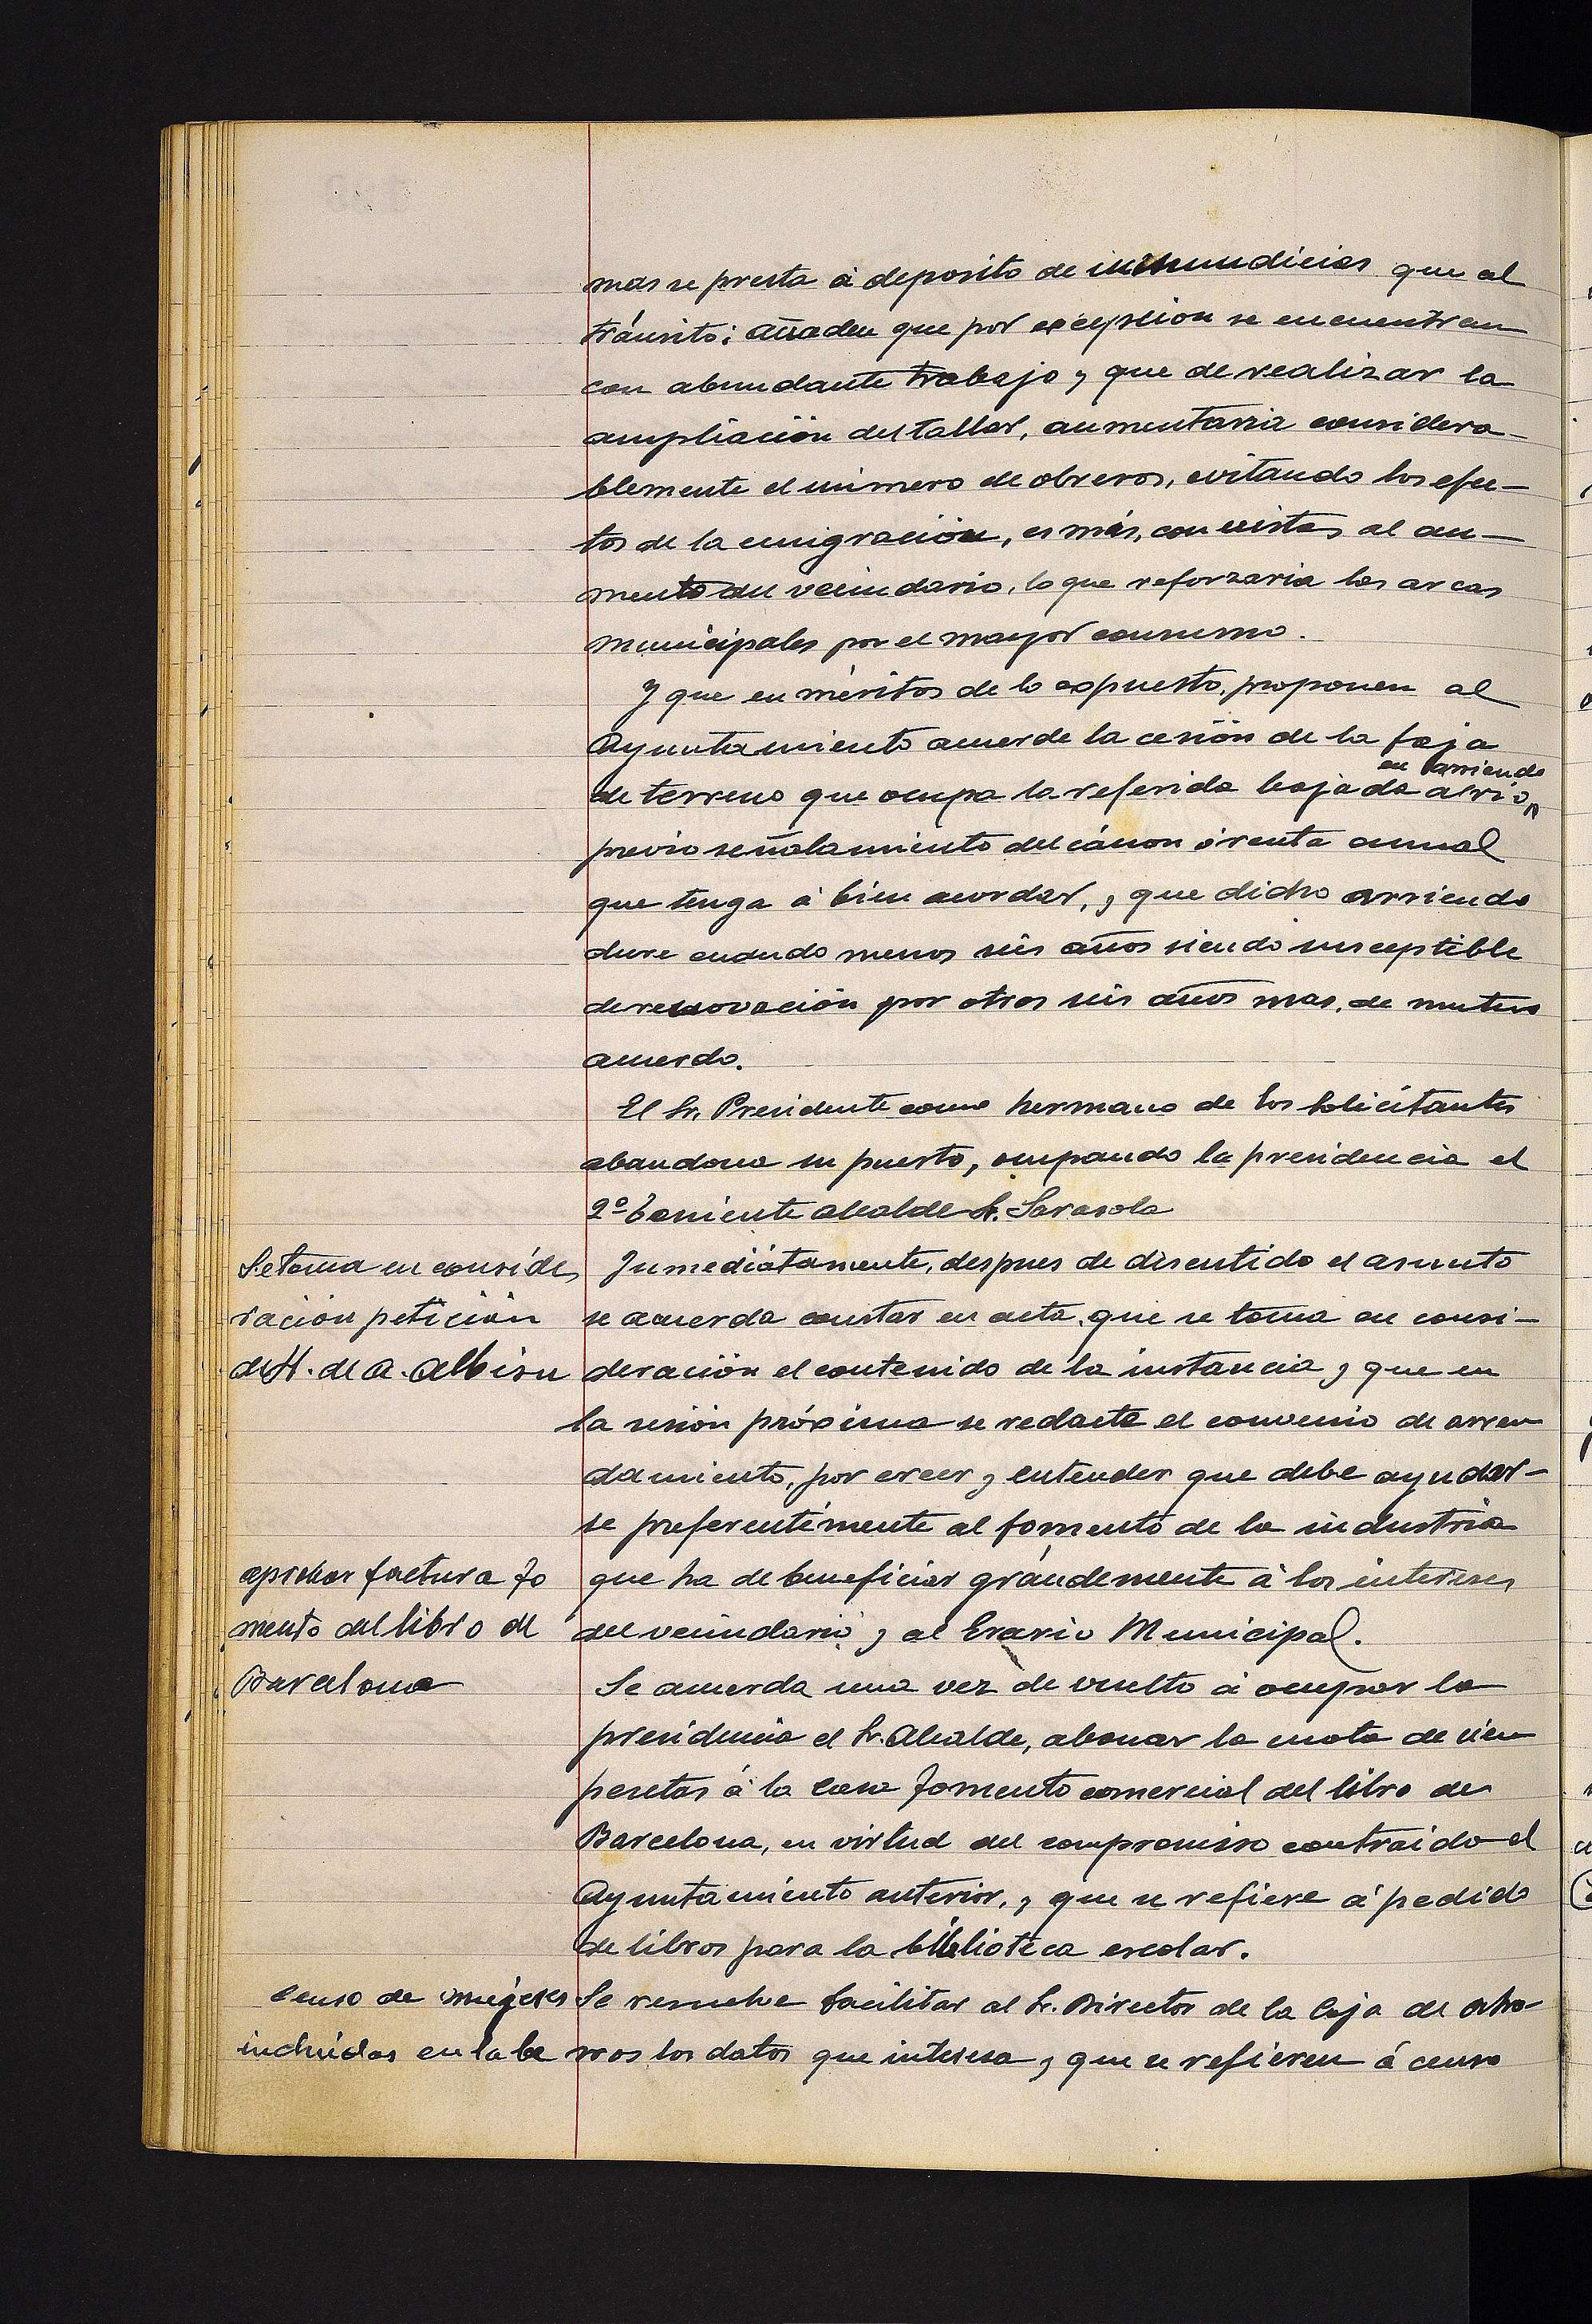 mas se presta á deposito de inmundicias que al
tránsito; añaden que por excepcion se encuentran
con abundante trabajo y que de realizar la
ampliación del taller, aumentaria considera-
blemente el número de obreros, evitando los efec-
tos de la emigración, es más, con vistas al au-
mento del vecindario, lo que reforzaria las arcas
municipales por el mayor consumo.
Y que en méritos de lo expuesto, proponen al
Ayuntamiento acuerde la cesión de la faja
en arriendo
de terreno que ocupa la referida bajada al rio,
previo señalamiento del cánon ó renta anual
que tenga á bien acordar, y que dicho arriendo
dure cuando menos seis años siendo susceptible
de renovación por otros seis años mas, de mutuo
acuerdo.
El Sr. Presidente como hermano de los solicitantes
abandona su puesto, ocupando la presidencia el
2º teniente alcalde Sr. Sarasola
Se toma en conside
ración petición
de H. de A. Albisu
Inmediátamente, despues de discutido el asunto
se acuerda constar en acta, que se toma en consi-
deración el contenido de la instancia y que en
la sesión próxima se redacte el convenio de arren
damiento, por creer y entender que debe ayudar-
se preferentemente al fomento de la industria
que ha de beneficiar grándemente á los intereses
del vecindario y al Erario Municipal.
aprobar factura fo
mento del libro de
Barcelona
Se acuerda una vez de vuelto á ocupar la
presidencia el Sr. Alcalde, abonar la nota de cien
pesetas á la casa Fomento comercial del libro de
Barcelona, en virtud del compromiso contraido el
Ayuntamiento anterior, y que se refiere á pedido
de libros para la biblioteca escolar.
Censo de mujeres
incluidas en la be
Se resuelve facilitar al Sr. Director de la Caja de Aho-
rros los datos que interesa y que se refieren á censo